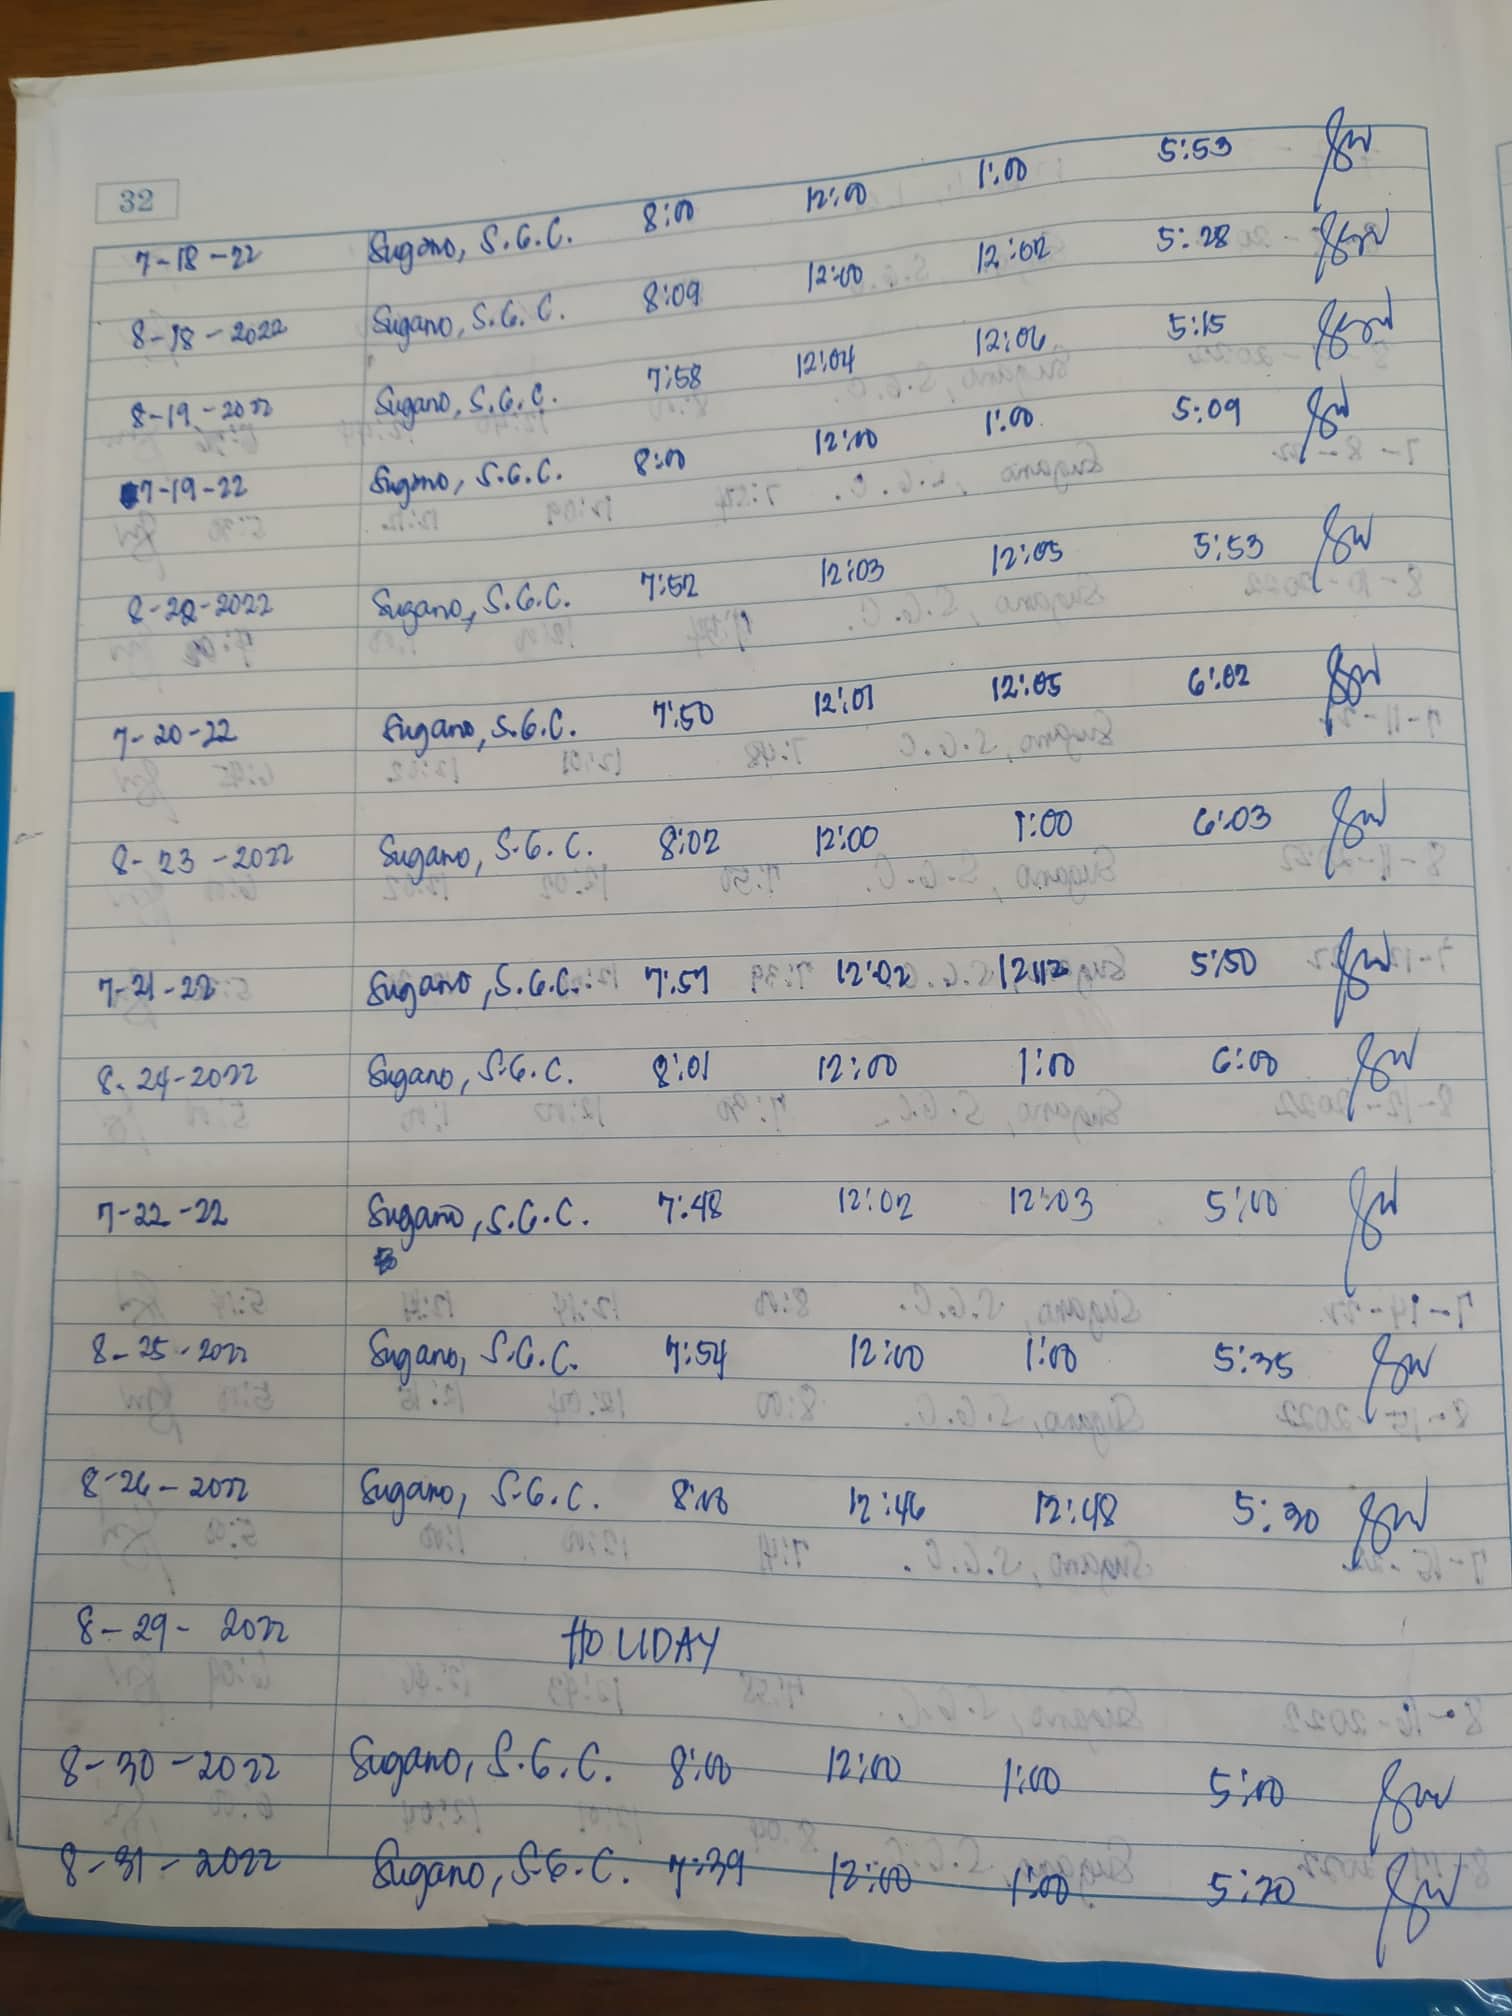 32
7-18-22 Sugano, S.G.C. 8:00 12:00 1:00 5:53
8-18-2022 Sugano, S.G.C. 8:09 12:00 12:02 5:28
8-19-2022 Sugano, S.G.C. 7:58 12:04 12:06 5:15
7-19-22 Sugano, S.G.C. 8:00 12:00 1:00 5:09
8-2022 Sugano, S.G.C. 7:52 12:03 12:05 5:53
7-20-22 Sugano, S.G.C. 7:50 12:01 12:05 6:02
8-23-2022 Sugano, S.G.C. 8:02 12:00 1:00 6:03
7-21-22 Sugano, S.G.C. 7:57 12:02 12:12 5:50
8-24-2022 Sugano, S.G.C. 8:01 12:00 1:00 6:00
7-22-22 Sugano, S.G.C. 7:48 12:02 12:03 5:00
8-25-2022 Sugano, S.G.C. 7:54 12:00 1:00 5:35
8-26-2022 Sugano, S.G.C. 8:00 12:46 12:48 5:30
8-29-2022 HOLIDAY
8-30-2022 Sugano, S.G.C. 8:00 12:00 1:00 5:00
8-31-2022 Sugano, S.G.C. 7:39 12:00 1:00 5:20